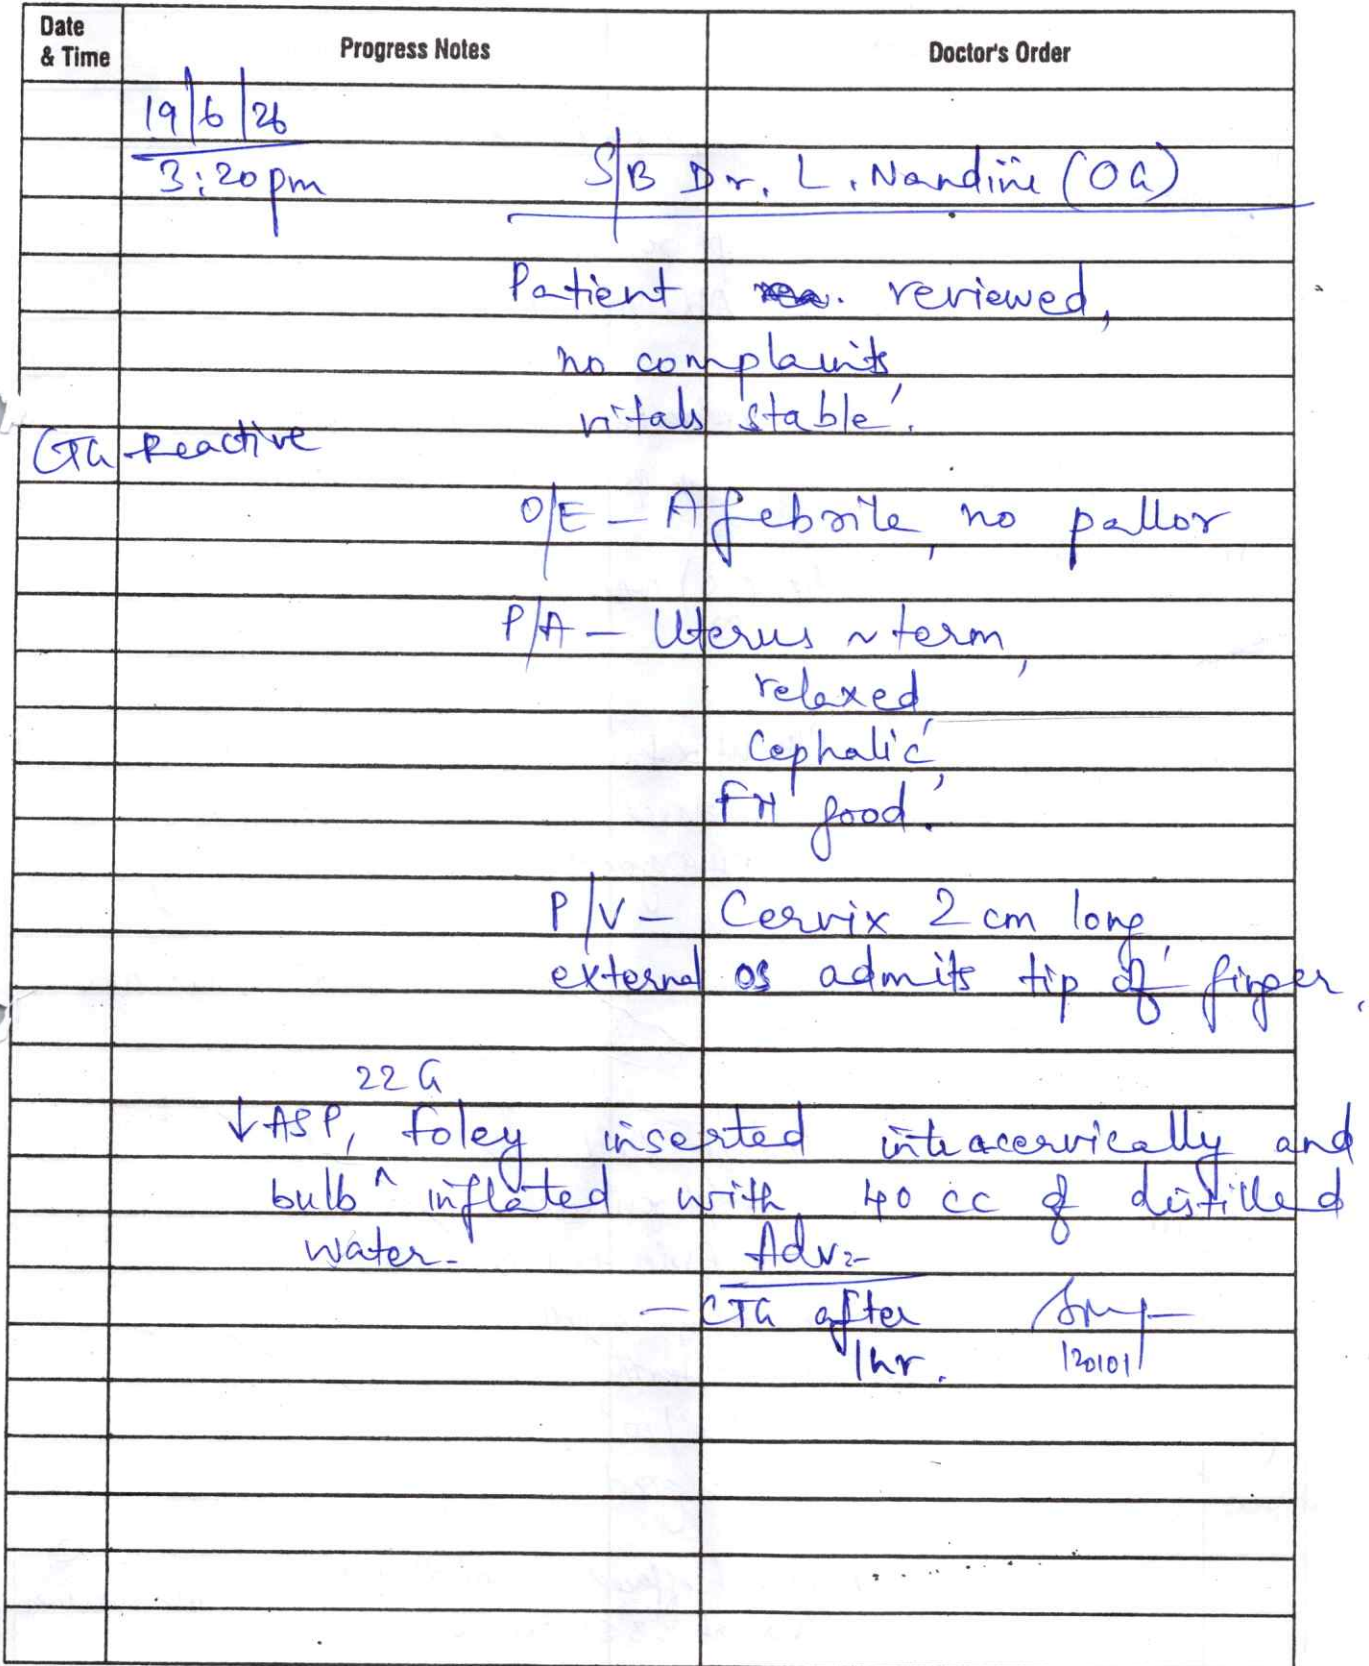 Date & Time Progress Notes Doctor's Order
19/6/26
3:20pm S/B Dr. L. Nandini (OG)
Patient reviewed,
no complaints,
vitals stable.
CTG Reactive
O/E - Afebrile, no pallor
P/A - Uterus ~ term,
relaxed,
Cephalic,
FH good.
P/V - Cervix 2 cm long,
external os admits tip of finger.
22 G
↓ ASP, foley inserted intracervically and
bulb ^ inflated with 40 cc of distilled
water.
Adv:-
- CTG after
1hr.
120101